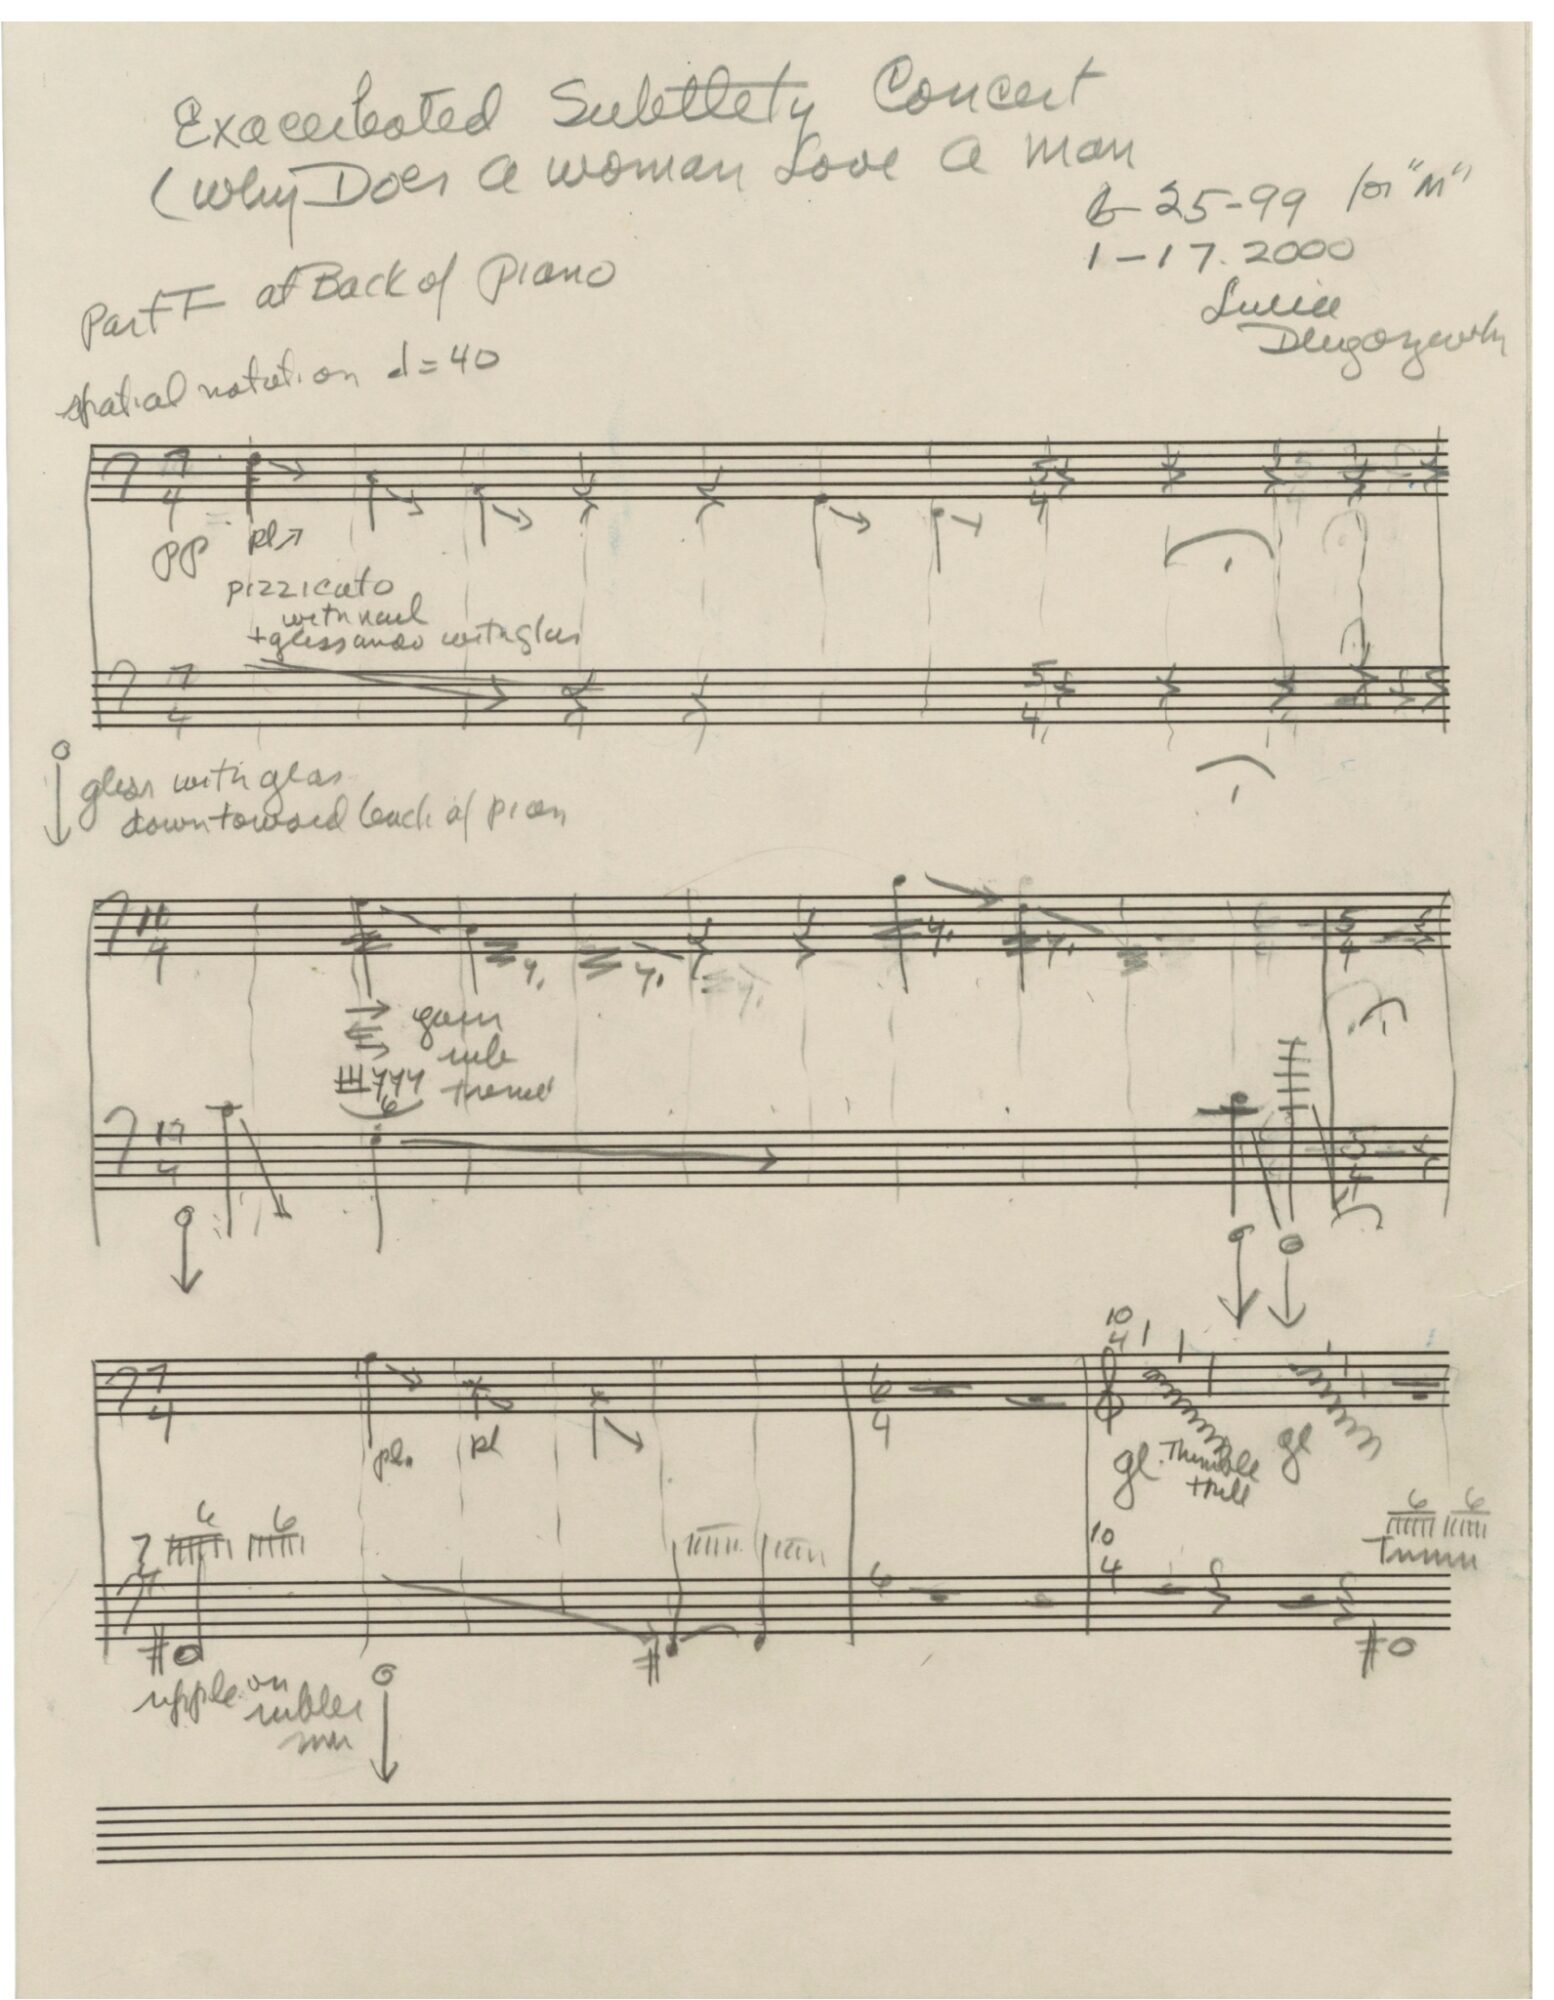 Exacerbated Subtlety Concert
(Why Does a woman Love a man
6-25-99 for "M"
1-17.2000
Lucia
Dlugoszewski
Part I at Back of Piano
spatial notation d=40
7
4
5
4
pp
pl
pizzicato
with nail
+ glissando with glas
7
4
5
4
gliss with glas
down toward back of pian
4
5
4
6
4
5
4
7
4
6
4
10
4
pl.
pl
gl. Thimble
trill
gl
6 6
7
6
10
4
6 6
ripple on
rubber